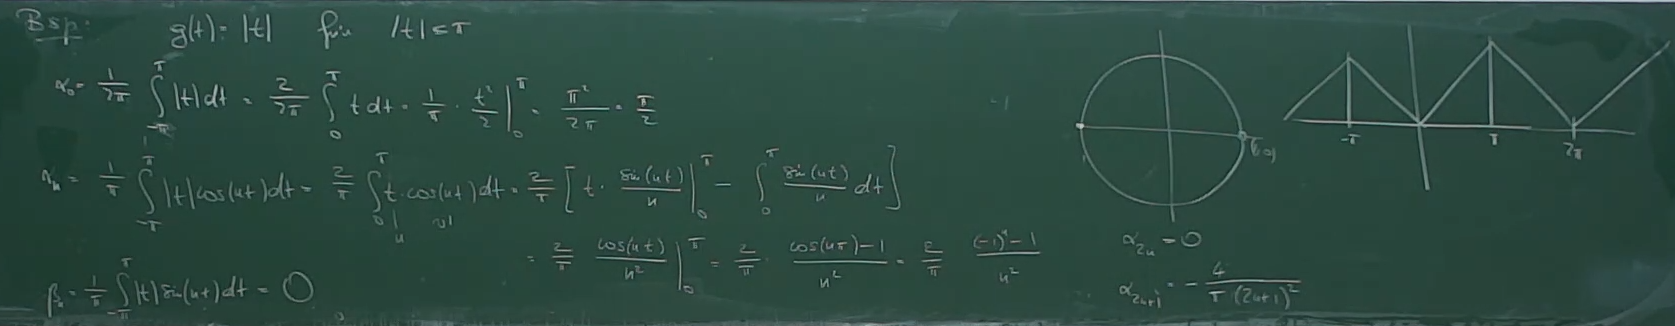 Bsp: g(t) = |t| für |t| ≤ π
α₀ = 1/2π ∫_{-π}^{π} |t| dt = 2/2π ∫_0^π t dt = 1/π · t²/2 |_0^π = π²/2π = π/2
αₙ = 1/π ∫_{-π}^{π} |t| cos(nt) dt = 2/π ∫_0^π t · cos(nt) dt = 2/π [ t · sin(nt)/n |_0^π - ∫_0^π sin(nt)/n dt ]
u v'
= 2/π cos(nt)/n² |_0^π = 2/π · cos(nπ)-1/n² = 2/π (-1)ⁿ-1/n²
βₙ = 1/π ∫_{-π}^{π} |t| sin(nt) dt = 0
-π π 2π
α_{2n} = 0
α_{2n+1} = - 4/π(2n+1)²